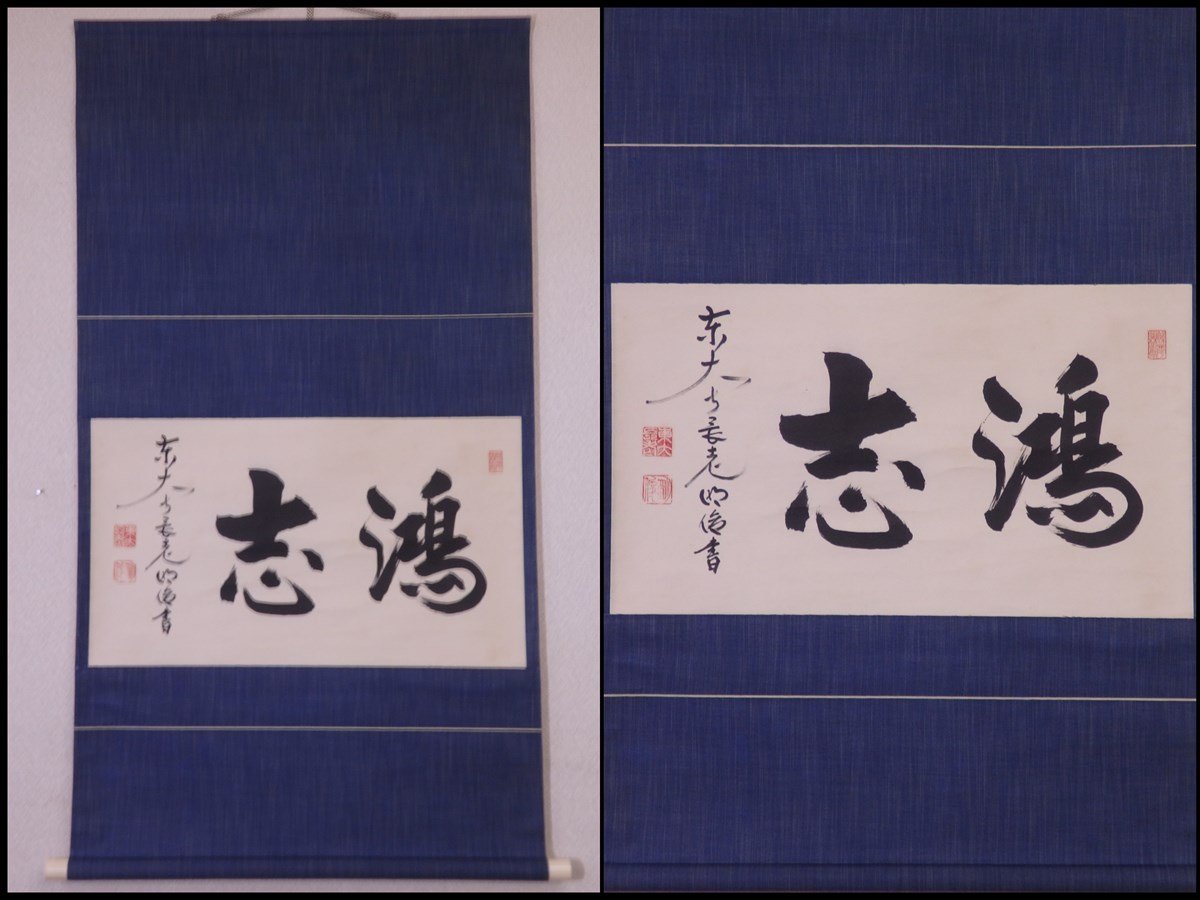 鴻志
東大寺長老明俊書
鴻志
東大寺長老明俊書